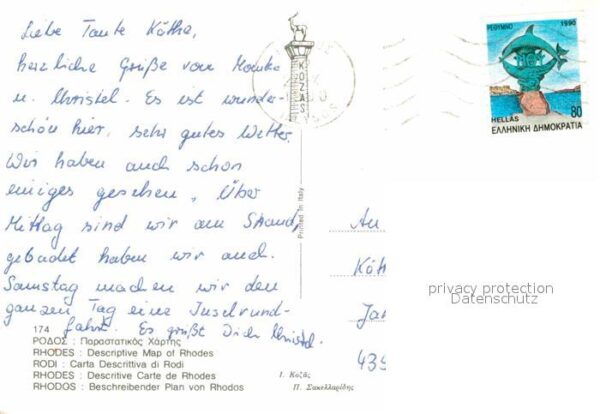 Liebe Tante Käthe,
herzliche Grüße von Monika
u. Christel. Es ist wunder-
schön hier, sehr gutes Wetter.
Wir haben auch schon
einiges gesehen. Über
Mittag sind wir am Strand,
gebadet haben wir auch.
Samstag machen wir den
ganzen Tag eine Inselrund-
fahrt. Es grüßt Dich Christel.
KOZAS
Printed in Italy
ΡΕΘΥΜΝΟ 1990
HELLAS 80
ΕΛΛΗΝΙΚΗ ΔΗΜΟΚΡΑΤΙΑ
An
Käth
Jan
435
privacy protection
Datenschutz
174
ΡΟΔΟΣ : Παραστατικός Χάρτης
RHODES : Descriptive Map of Rhodes
RODI : Carta Descrittiva di Rodi
RHODES : Descritive Carte de Rhodes
RHODOS : Beschreibender Plan von Rhodos
Ι. Κοζᾶς
Π. Σακελλαρίδης